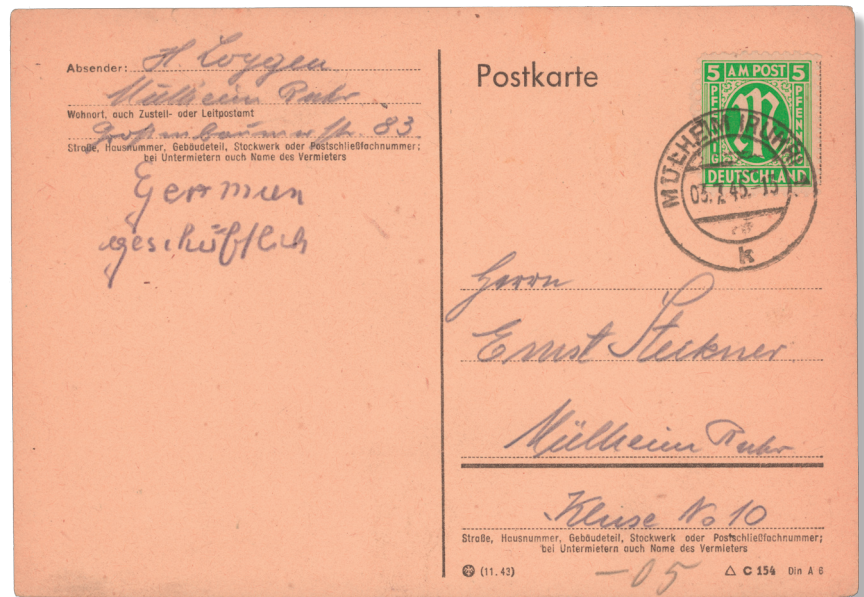 Absender: H Loggen
Mülheim Ruhr
Wohnort, auch Zustell- oder Leitpostamt
Großenbaumerstr. 83
Straße, Hausnummer, Gebäudeteil, Stockwerk oder Postschließfachnummer;
bei Untermietern auch Name des Vermieters
German
geschäftlich
Postkarte
5 AM POST 5
PFENNIG
PFENNIG
M
DEUTSCHLAND
MÜLHEIM (RUHR)
03.7.45.-15
k
Herrn
Ernst Steckner
Mülheim Ruhr
Kluse No 10
Straße, Hausnummer, Gebäudeteil, Stockwerk oder Postschließfachnummer;
bei Untermietern auch Name des Vermieters
(11. 43)
-05
C 154 Din A 6